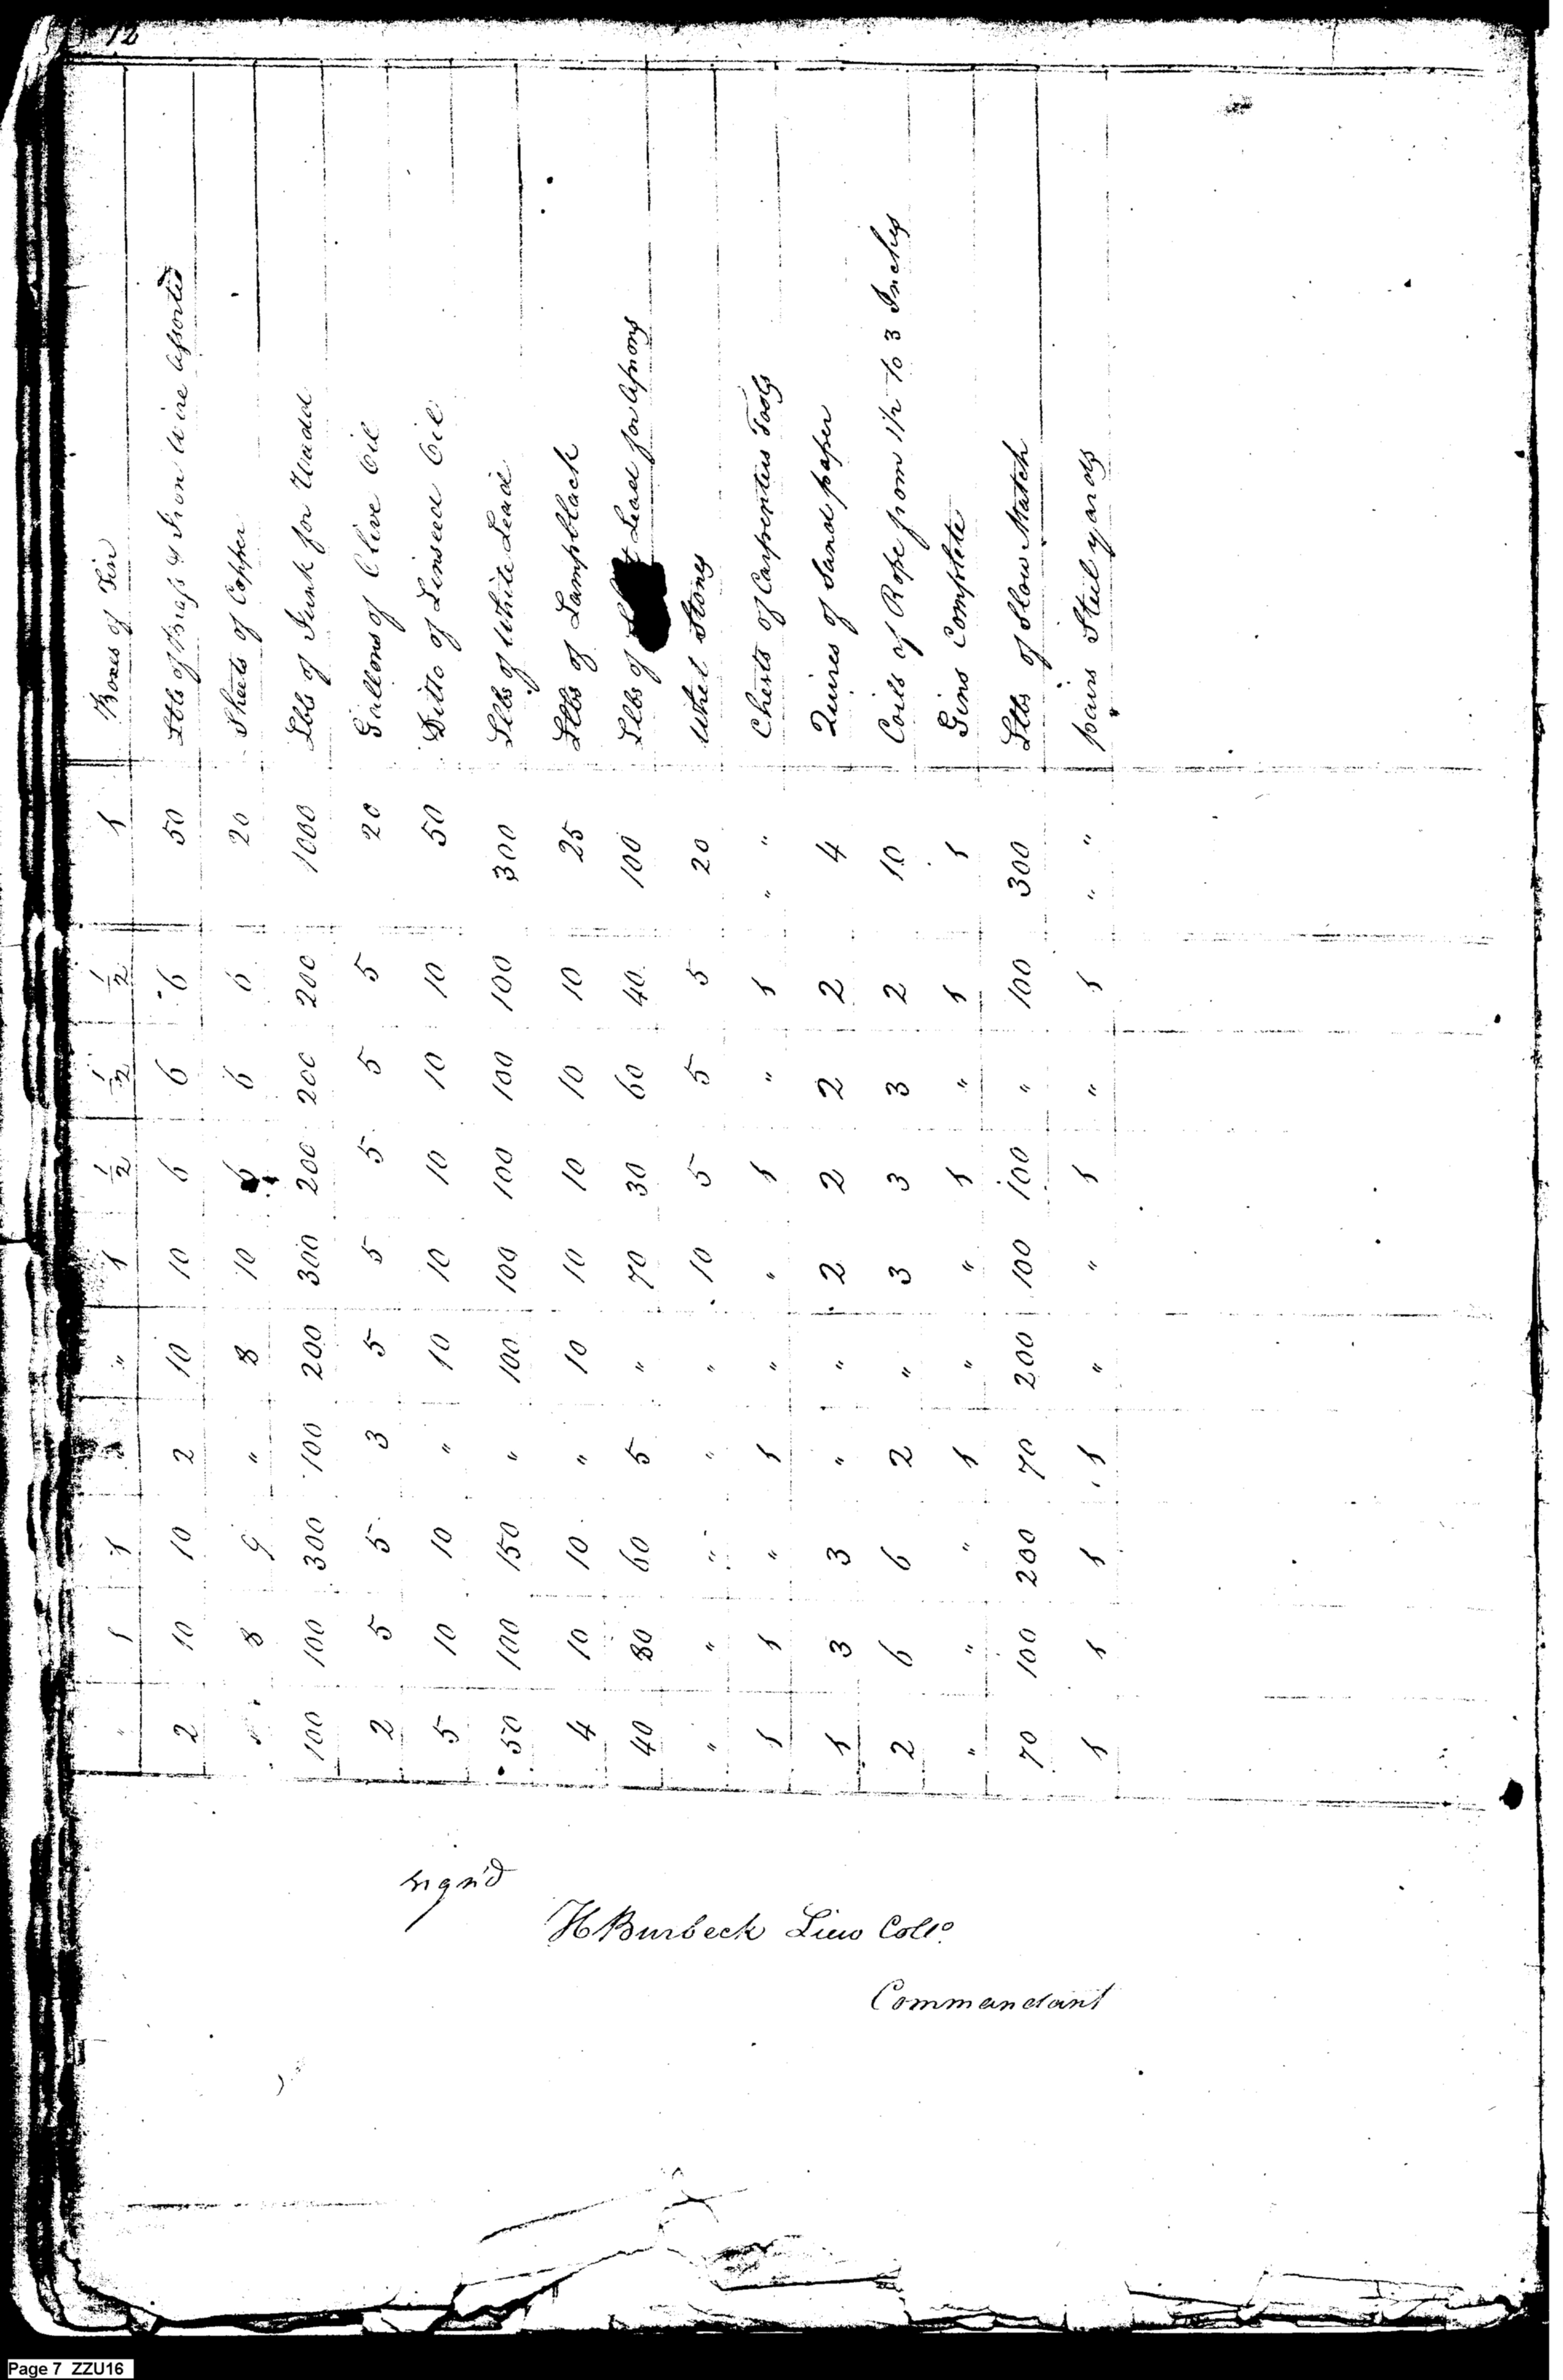 12
Boxes of Tin
Lbs of Brass & Iron Wire assorted
Sheets of Copper
Lbs of Junk for Wadd
Gallons of Olive Oil
Ditto of Linseed Oil
Lbs of White Lead
Lbs of Lampblack
Lbs of Lead for Aprons
Whet Stones
Chests of Carpenters Tools
Quires of Sand paper
Coils of Rope from 1½ to 3 Inches
Gins Complete
Lbs of Slow Match
pairs Steelyards
1 50 20 1000 20 50 300 25 100 20 " " 4 10 1 300 " "
½ 6 6 200 5 10 100 10 40 5 1 2 2 1 100 1
½ 6 6 200 5 10 100 10 60 5 " 2 3 " " "
½ 6 6 200 5 10 100 10 30 5 1 2 3 1 100 1
1 10 10 300 5 10 100 10 70 10 " 2 3 " 100 "
" 10 8 200 5 10 100 10 " " " " " " 200 "
" 2 " 100 3 " " " 5 " 1 " 2 1 70 1
1 10 9 300 5 10 150 10 60 " " 3 6 " 200 1
1 10 8 100 5 10 100 10 80 " 1 3 6 " 100 1
" 2 100 2 5 50 4 40 " 1 1 2 " 70 1
sign'd
H Burbeck Lieu Collo
Commandant
Page 7 ZZU16